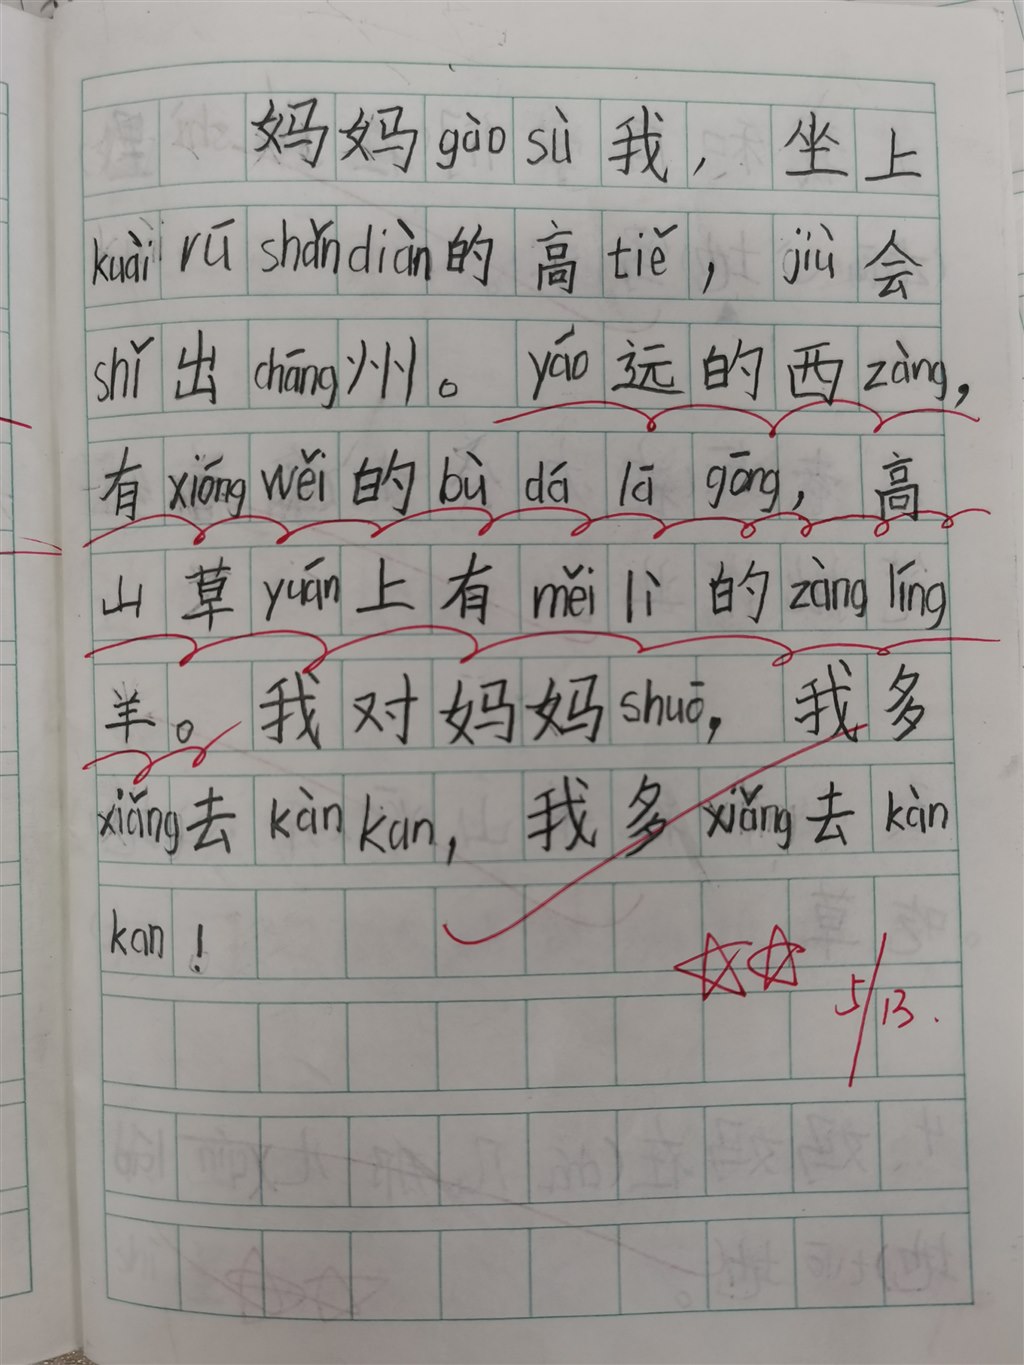 妈妈gào sù我，坐上
kuài rú shǎn diàn的高tiě，jiù会
shǐ出chāng州。yáo远的西zàng，
有xióng wěi的bù dá lā gōng，高
山草yuán上有měi lì的zàng líng
羊。我对妈妈shuō，我多
xiǎng去kàn kan，我多xiǎng去kàn
kan！
5/13.